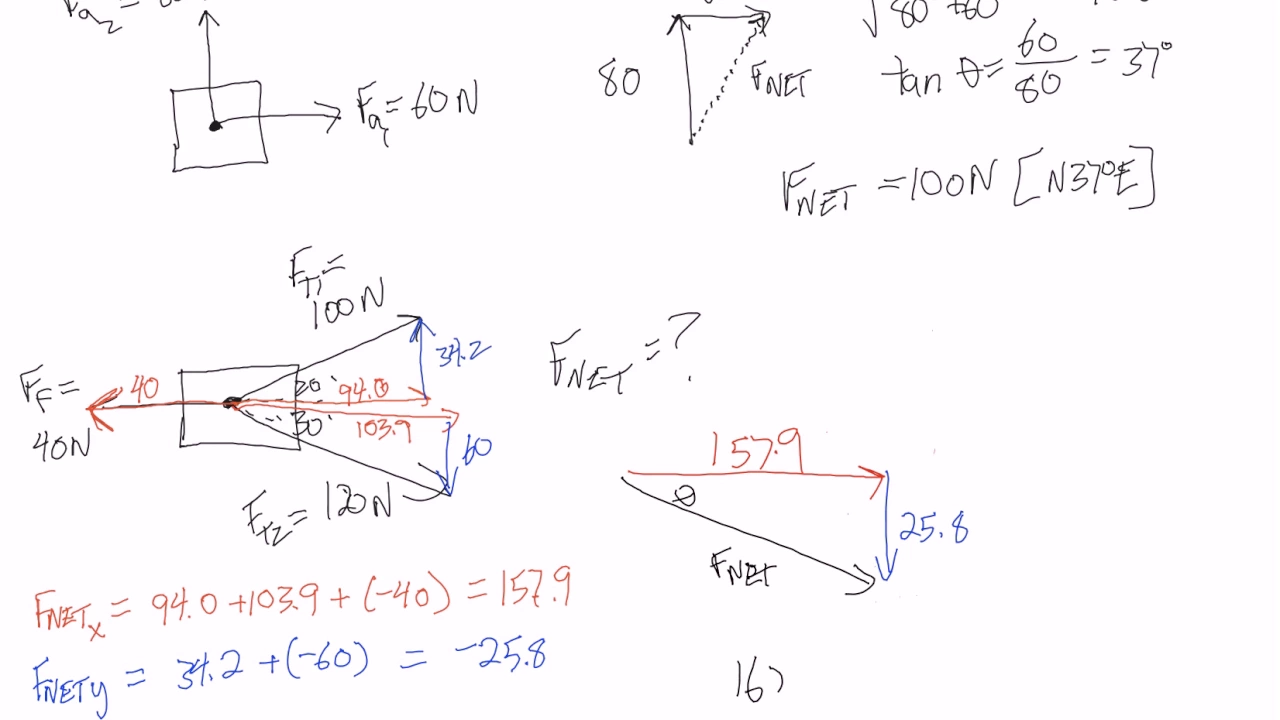 Fa₂ =
Fa₁ = 60N
80
FNET
√80 + 60
tan θ = 60/80 = 37°
FNET = 100N [N37°E]
FT₁ =
100N
34.2
FNET = ?
FF =
40N
40
20°
94.0
30°
103.9
60
FT₂ = 120N
157.9
θ
25.8
FNET
FNETx = 94.0 + 103.9 + (-40) = 157.9
FNETy = 34.2 + (-60) = -25.8